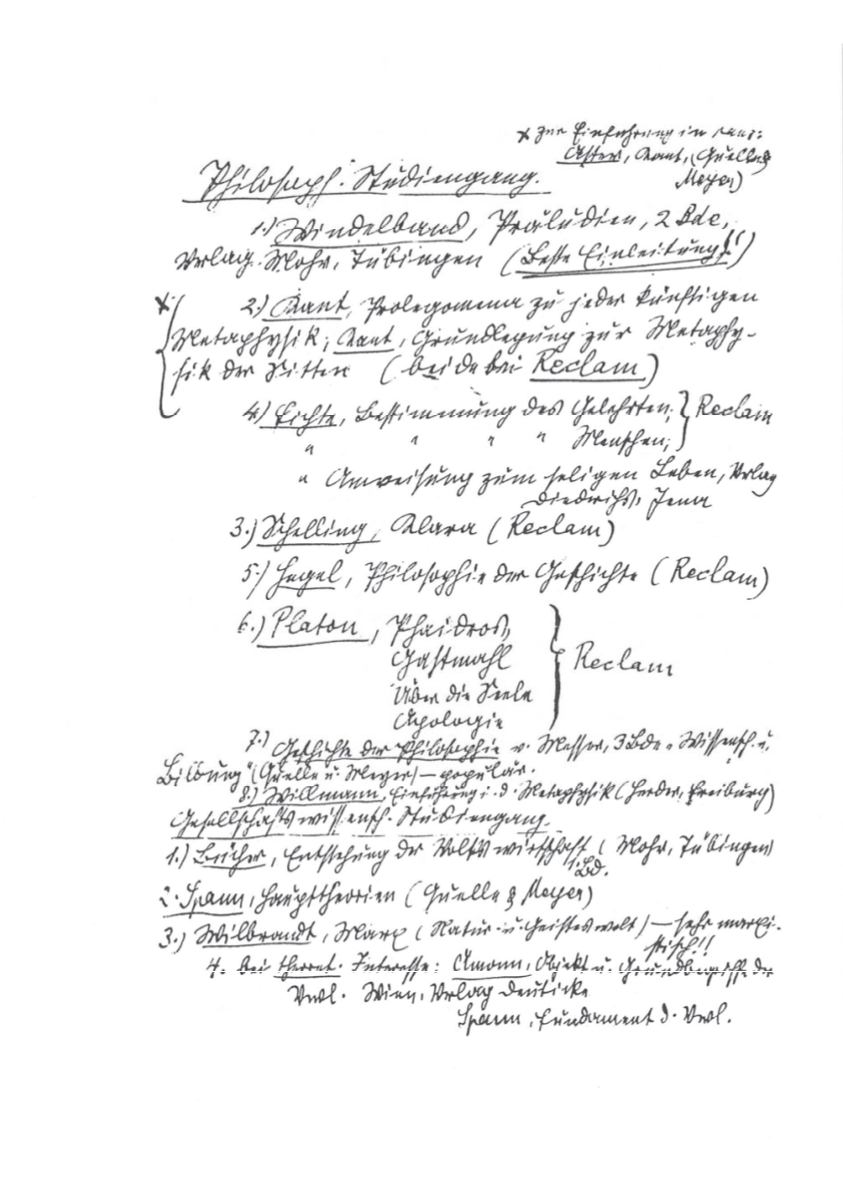 * Zur Einführung in Kant:
Aster, Kant, (Quelle &
Meyer)
Philosoph. Studiengang.
1.) Windelband, Präludien, 2 Bde,
Verlag Mohr, Tübingen (Beste Einleitung!!)
* 2.) Kant, Prolegomena zu jeder künftigen
Metaphysik; Kant, Grundlegung zur Metaphy-
sik der Sitten (beide bei Reclam)
4.) Fichte, Bestimmung des Gelehrten; } Reclam
" " " " Menschen;
" Anweisung zum seligen Leben, Verlag
Diedrichs, Jena
3.) Schelling, Klara (Reclam)
5.) Hegel, Philosophie der Geschichte (Reclam)
6.) Platon, Phaidros,
Gastmahl
Über die Seele
Apologie
} Reclam
7.) Geschichte der Philosophie v. Messer, 3 Bde „Wissensch. u.
Bildung" (Quelle u. Meyer) – populär.
8.) Willmann, Einführung i. d. Metaphysik (Herder, Freiburg)
Gesellschaftswissensch. Studiengang.
1.) Bücher, Entstehung der Volkswirtschaft (Mohr, Tübingen)
1. Bd.
2. Spann, Haupttheorien (Quelle & Meyer)
3.) Wilbrandt, Marx (Natur- u. Geisteswelt) – sehr marxi-
stisch!!
4. bei theoret. Interesse: Amonn, Objekt u. Grundbegriffe der
Vwl. Wien, Verlag Deuticke
Spann, Fundament d. Vwl.